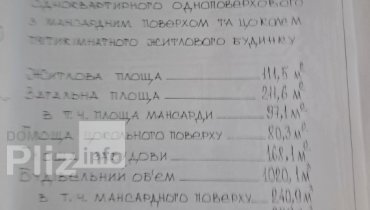 одноквартирного одноповерхового
з мансардним поверхом та цоколем
пятикімнатного житлового будинку
Житлова площа 111,5 м²
Загальна площа 211,6 м²
в т.ч. площа мансарди 97,1 м²
площа цокольного поверху 80,3 м²
забудови 168,1 м²
Будівельний об'єм 1020,1 м³
в т.ч. мансардного поверху 240,9 м³
Pliz.info